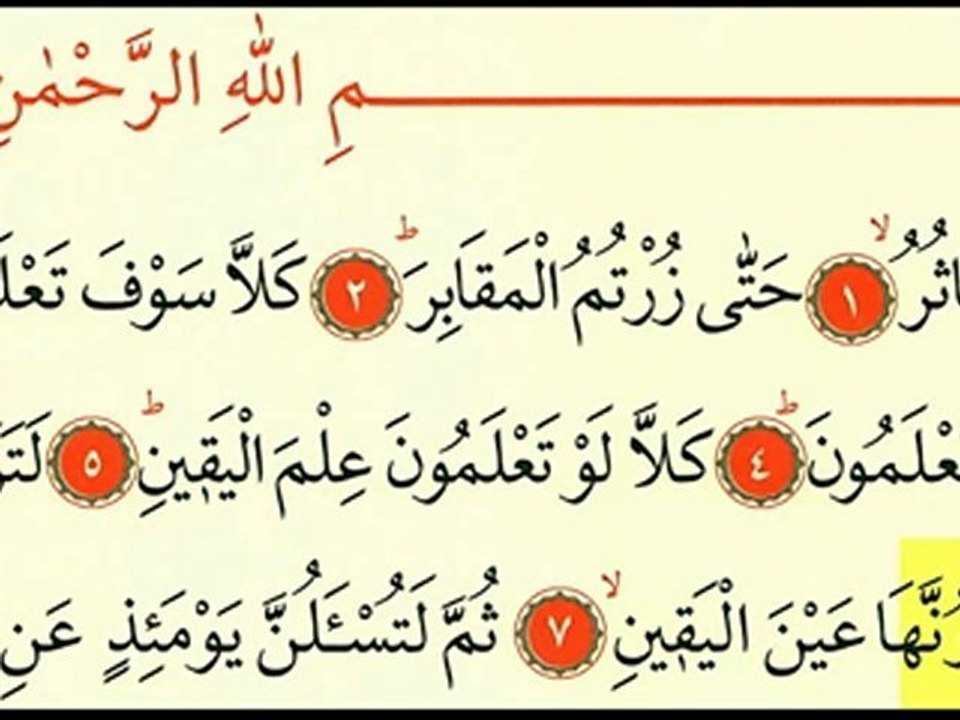 مِ اللّٰهِ الرَّحْمٰنِ
اثُرُۙ ﴿١﴾ حَتّٰى زُرْتُمُ الْمَقَابِرَۜ ﴿٢﴾ كَلاَّ سَوْفَ تَعْلَ
عْلَمُونَۜ ﴿٤﴾ كَلاَّ لَوْ تَعْلَمُونَ عِلْمَ الْيَق۪ينِۜ ﴿٥﴾ لَتَرَ
رُنَّهَا عَيْنَ الْيَق۪ينِۙ ﴿٧﴾ ثُمَّ لَتُسْـَٔلُنَّ يَوْمَئِذٍ عَنِ